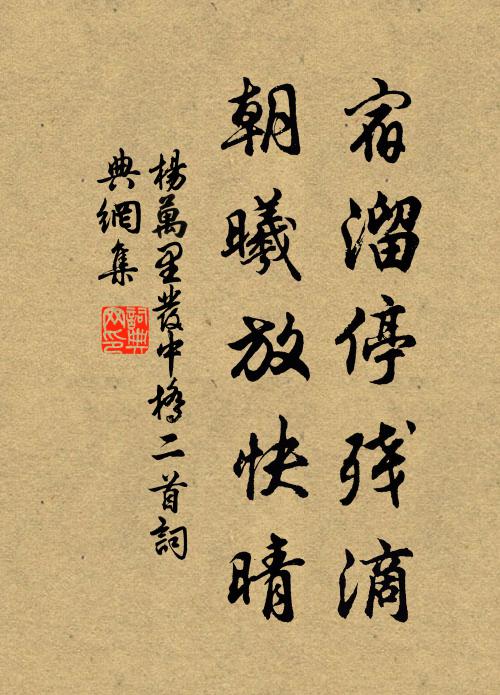 宿溜停残滴
朝曦放快晴
楊萬里發中橋二首詞
典網集
詞典網印